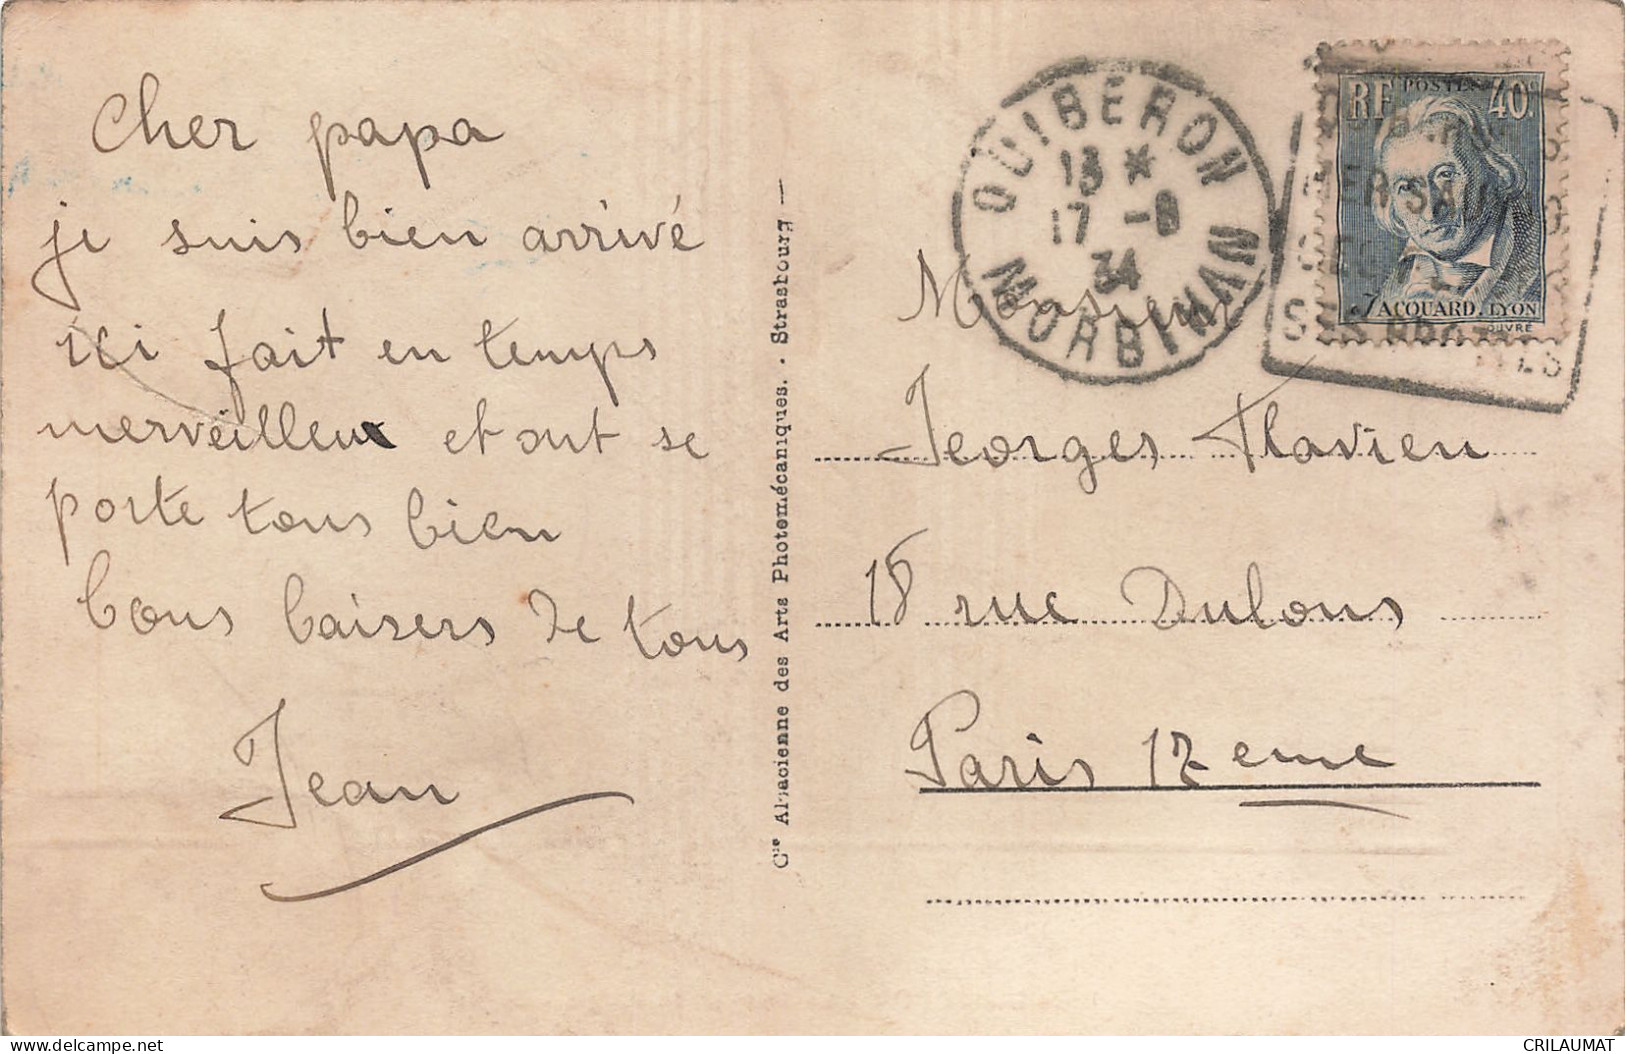 Cher papa
je suis bien arrivé
ici fait en temps
merveilleux et out se
porte tous bien
bons baisers de tous
Jean
Cie Alsacienne des Arts Photomécaniques. - Strasbourg —
QUIBERON
13 *
17 -8
34
MORBIHAN
RF POSTES 40c
JACQUARD. LYON
OUVRÉ
Monsieur
Georges Flavien
18 rue Dulons
Paris 17 eme
CRILAUMAT